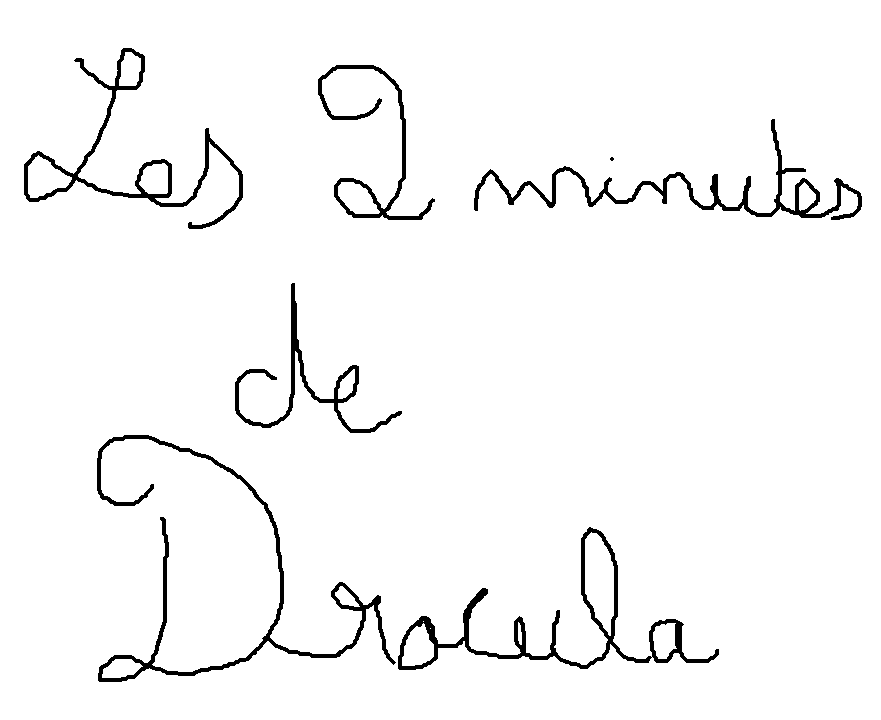 Les 2 minutes
de
Dracula